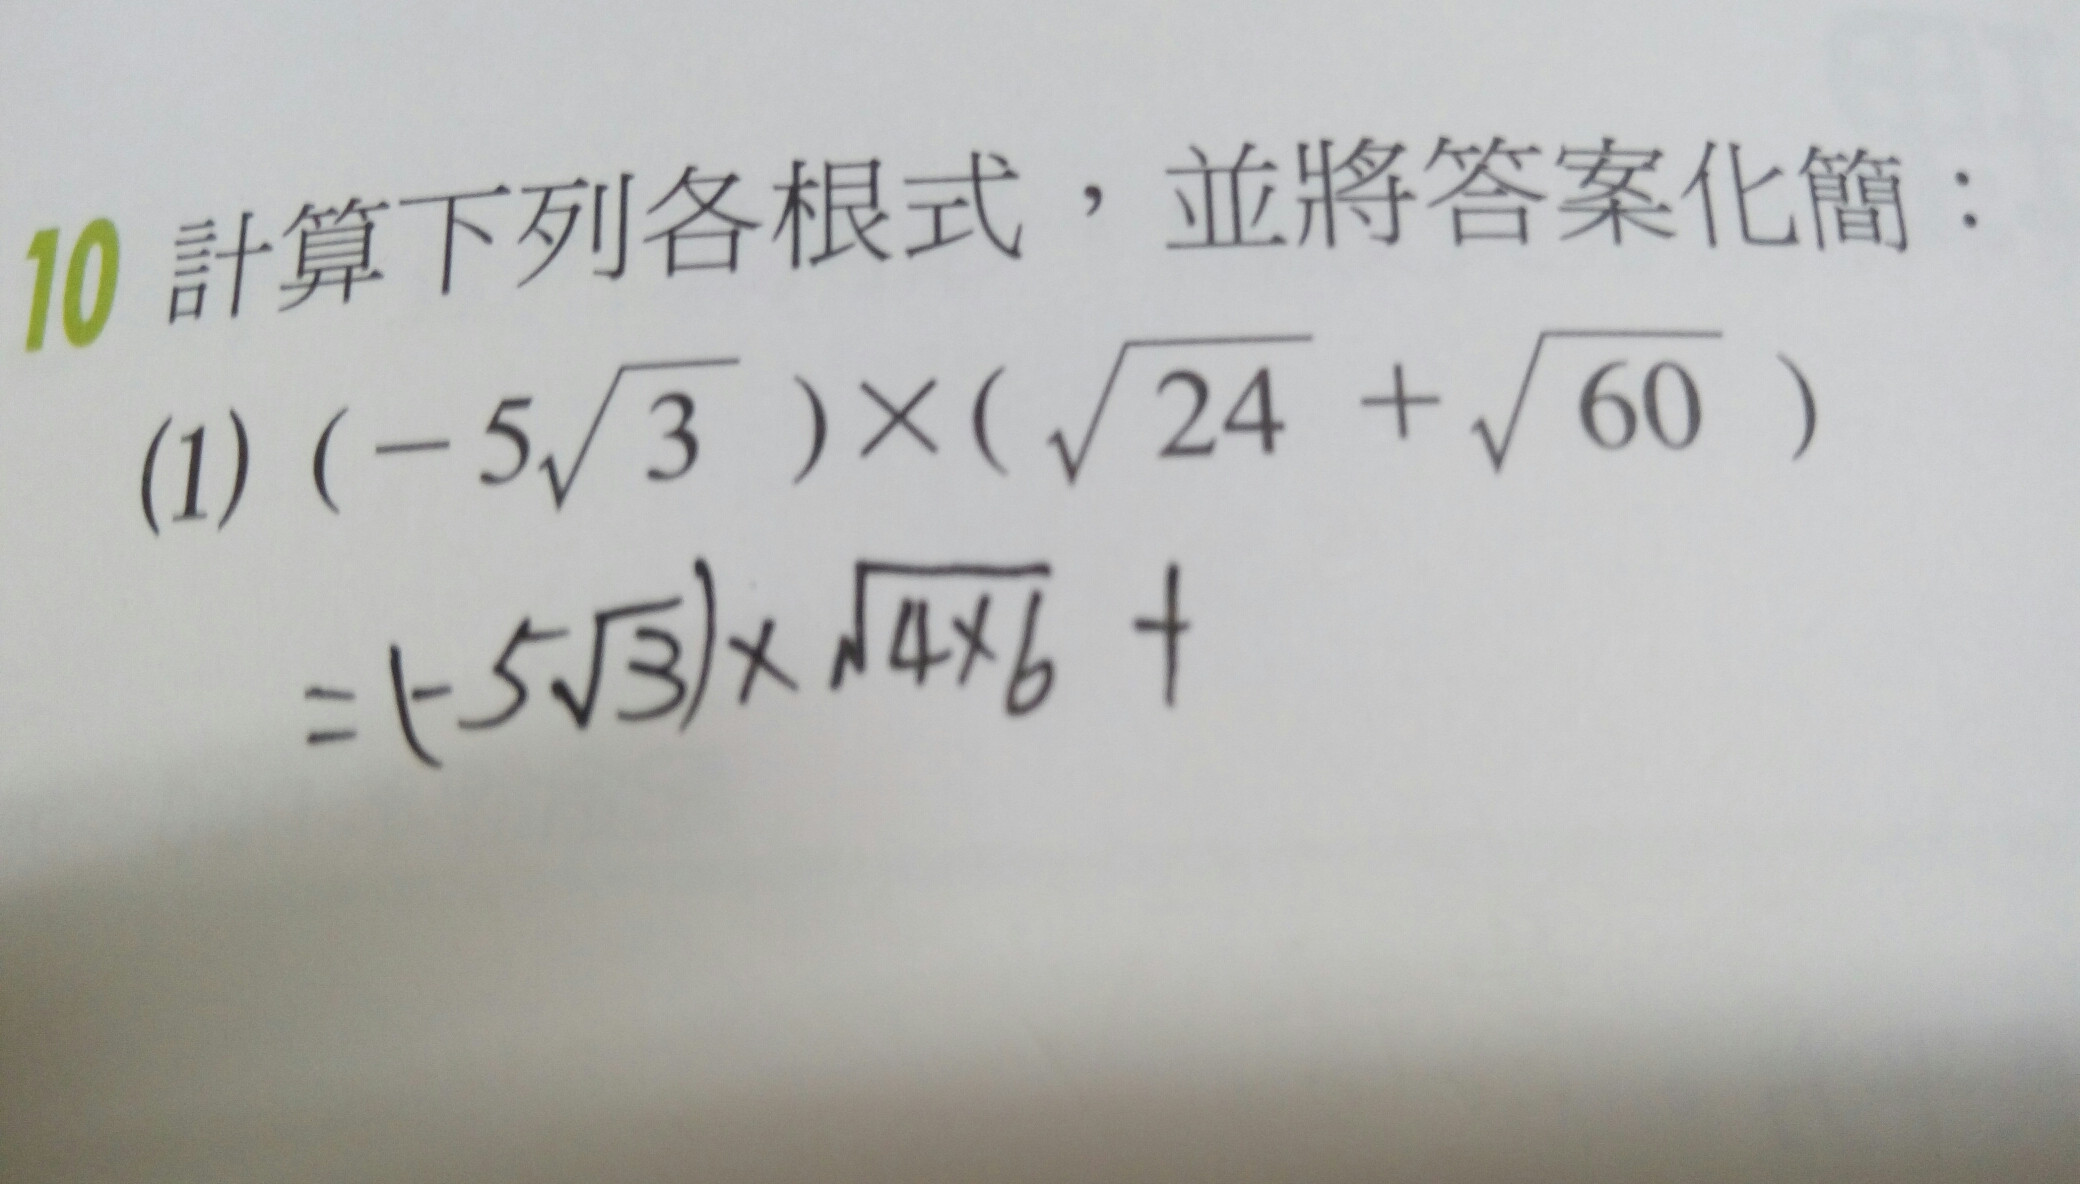 10 計算下列各根式，並將答案化簡：
(1) (－5√3)×(√24＋√60)
=(-5√3)×√4×6 +